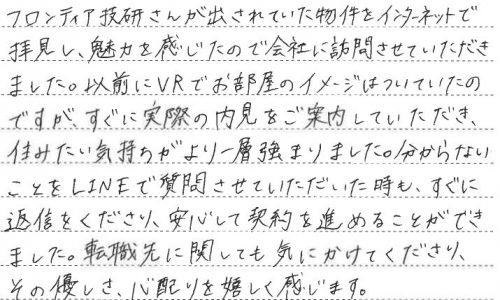 フロンティア技研さんが出されていた物件をインターネットで
拝見し、魅力を感じたので会社に訪問させていただき
ました。以前にVRでお部屋のイメージはついていたの
ですが、すぐに実際の内見をご案内していただき、
住みたい気持ちがより一層強まりました。分からない
ことをLINEで質問させていただいた時も、すぐに
返信をくださり、安心して契約を進めることができ
ました。転職先に関しても気にかけてくださり、
その優しさ、心配りを嬉しく感じます。